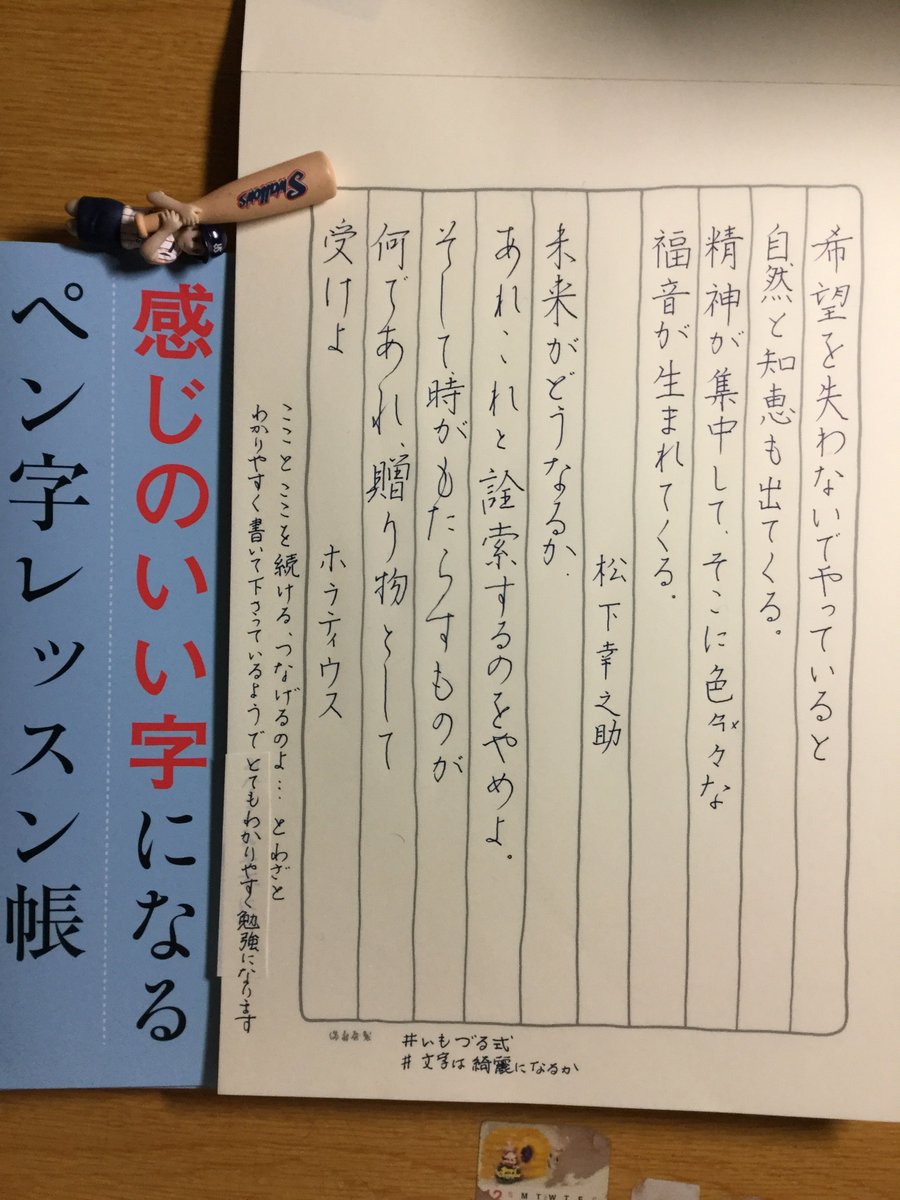 希望を失わないでやっていると
自然と知恵も出てくる。
精神が集中して、そこに色々な
福音が生まれてくる.
松下幸之助
未来がどうなるか.
あれこれと詮索するのをやめよ。
そして時がもたらすものが
何であれ、贈り物として
受けよ ホラティウス
ここと ここを続ける、つなげるのよ… とわざと
わかりやすく書いて下さっているようで とてもわかりやすく勉強になります
#いもづる式
#文字は綺麗になるか
感じのいい字になる
ペン字レッスン帳
Swallows
M T W T F